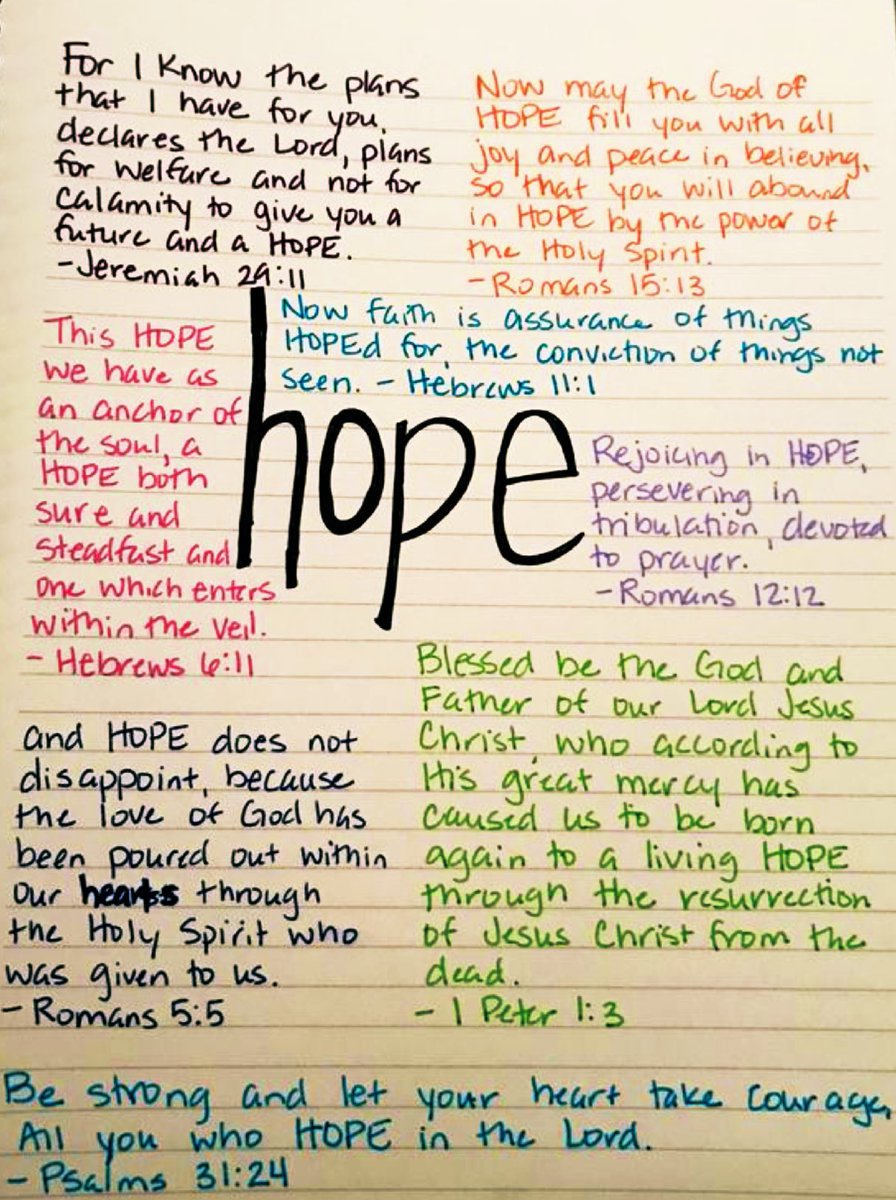 For I Know the plans
that I have for you,
declares the Lord, plans
for welfare and not for
calamity to give you a
future and a HOPE.
-Jeremiah 29:11
Now may the God of
HOPE fill you with all
joy and peace in believing,
so that you will abound
in HOPE by the power of
the Holy Spirit.
- Romans 15:13
Now faith is assurance of things
HOPEd for, the conviction of things not
seen. - Hebrews 11:1
This HOPE
we have as
an anchor of
the soul, a
HOPE both
sure and
steadfast and
one which enters
within the veil.
- Hebrews 6:11
hope
Rejoicing in HOPE,
persevering in
tribulation, devoted
to prayer.
- Romans 12:12
Blessed be the God and
Father of our Lord Jesus
Christ, who according to
His great mercy has
caused us to be born
again to a living HOPE
through the resurrection
of Jesus Christ from the
dead.
- 1 Peter 1:3
and HOPE does not
disappoint, because
the love of God has
been poured out within
our hearts through
the Holy Spirit who
was given to us.
- Romans 5:5
Be strong and let your heart take courage,
All you who HOPE in the Lord.
- Psalms 31:24